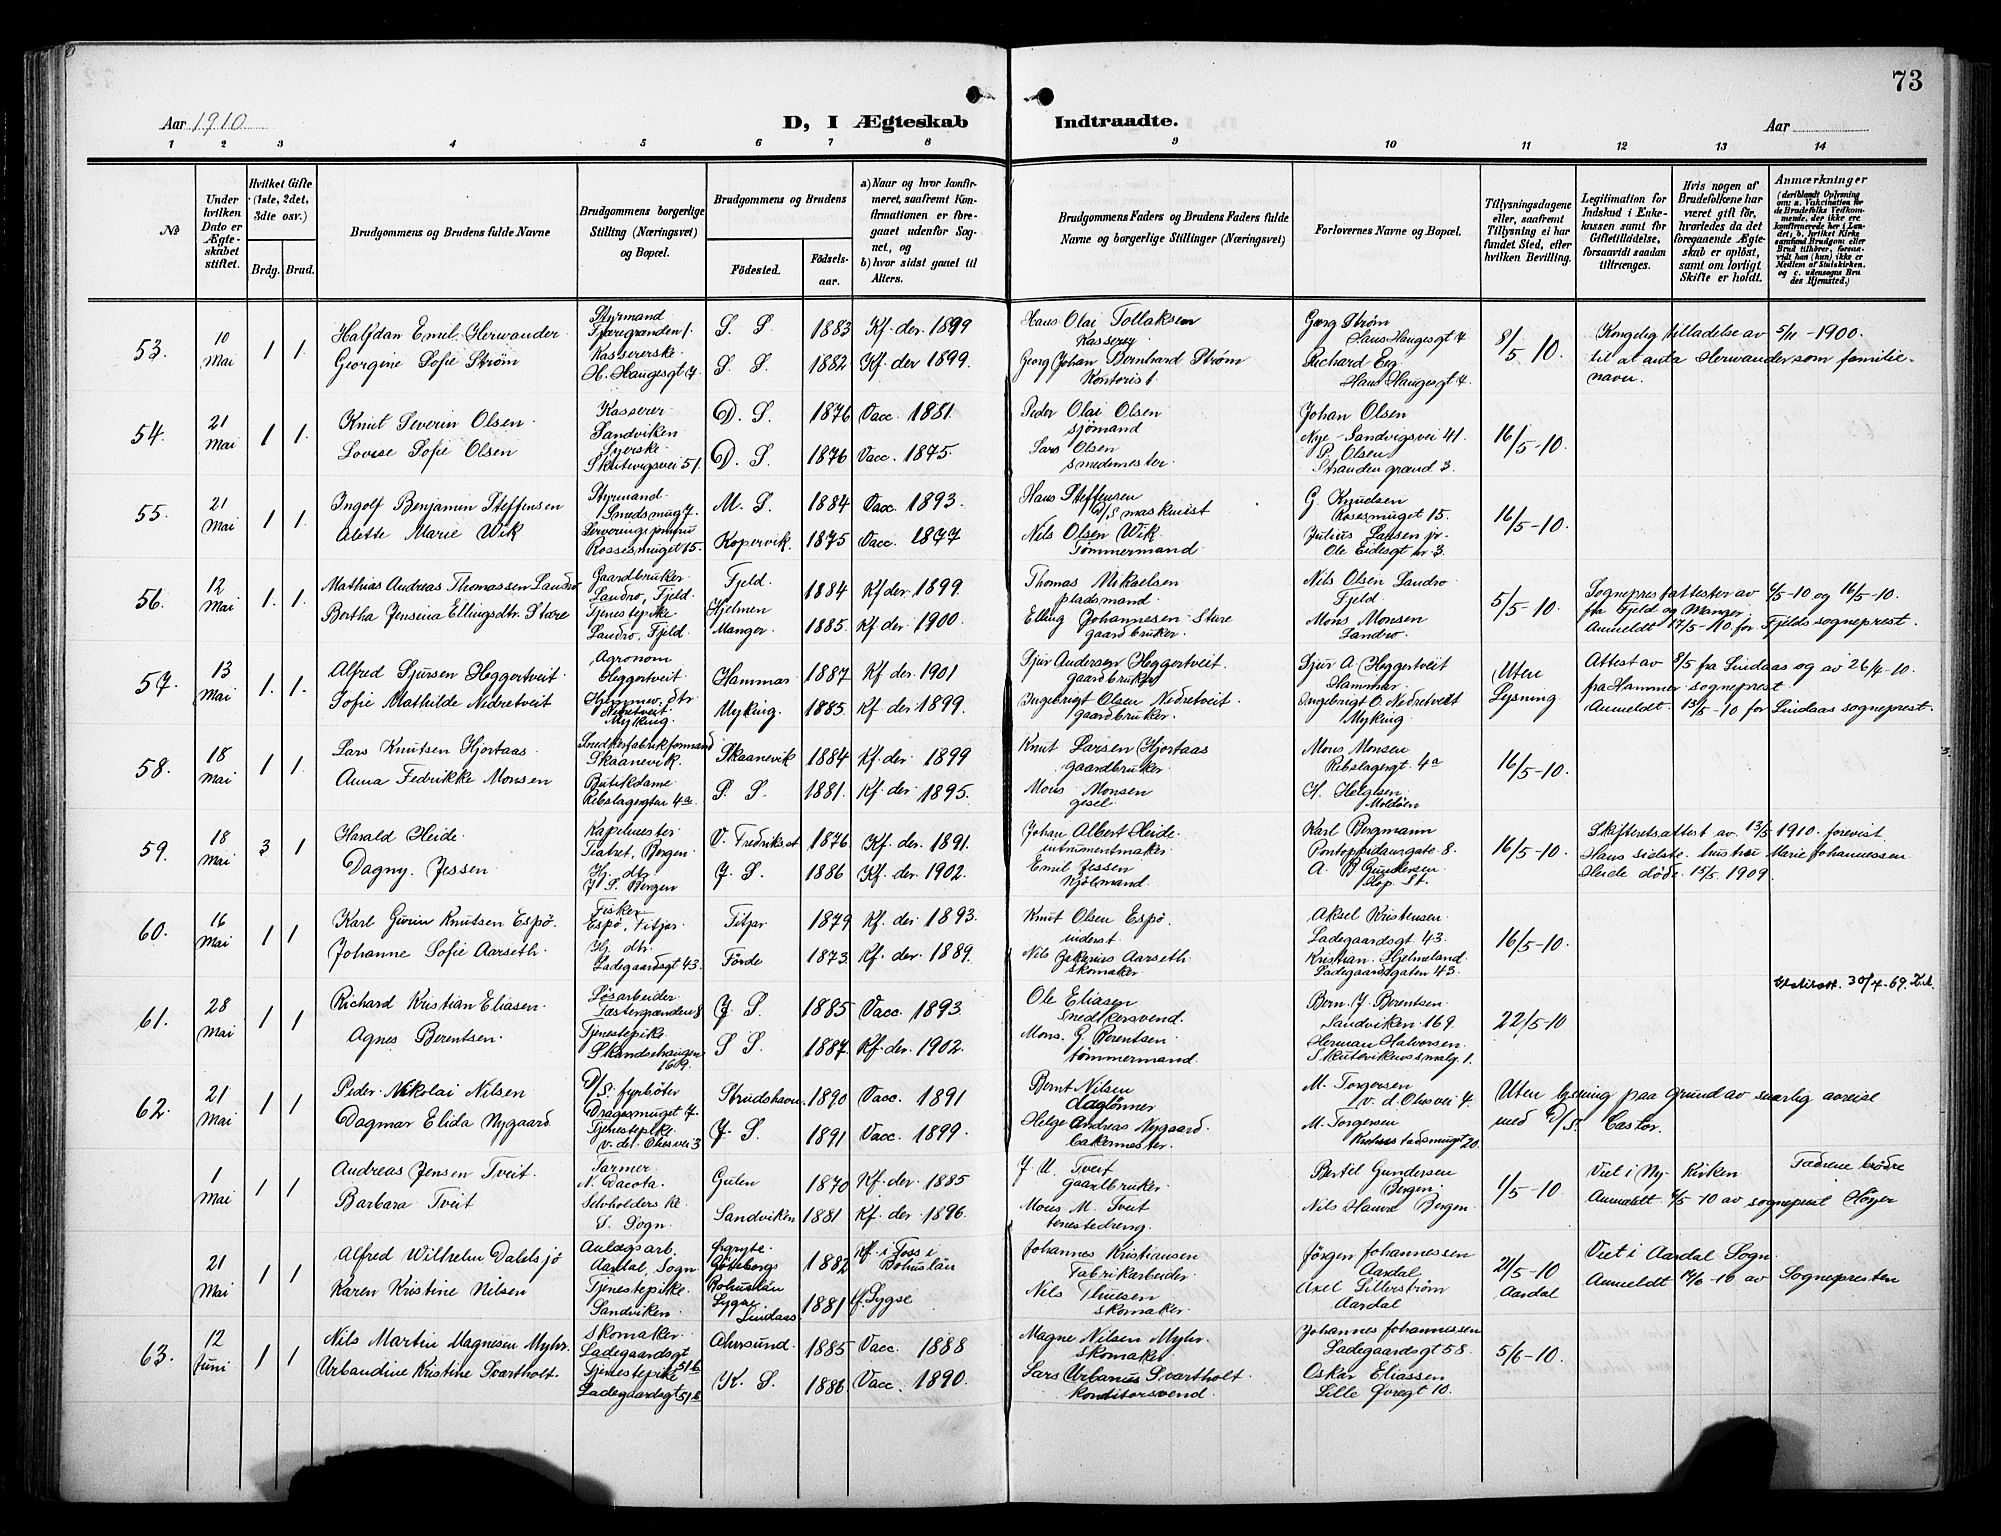 73
Aar 1910
D, I Ægteskab Indtraadte.
Aar
1 2 3 4 5 6 7 8 9 10 11 12 13 14
No
Under hvilken Dato er Ægteskabet stiftet.
Hvilket Gifte (1ste, 2det, 3die osv.)
Brdg. Brud.
Brudgommens og Brudens fulde Navne
Brudgommens borgerlige Stilling (Næringsvei) og Bopæl.
Brudgommens og Brudens
Fødested.
Fødselsaar.
a) Naar og hvor konfirmeret, saafremt Konfirmationen er foregaaet udenfor Sognet, og
b) hvor sidst gaaet til Alters.
Brudgommens Faders og Brudens Faders fulde Navne og borgerlige Stillinger (Næringsvei)
Forlovernes Navne og Bopæl.
Tillysningsdagene eller, saafremt Tillysning ei har fundet Sted, efter hvilken Bevilling.
Legitimation for Indskud i Enkekassen samt for Giftetilladelse, forsaavidt saadan tiltrænges.
Hvis nogen af Brudefolkene har været gift før, hvorledes da det foregaaende Ægteskab er opløst, samt om lovligt Skifte er holdt.
Anmærkninger
(deriblandt Oplysning om: a. Vakcination for de Brudefolks Vedkommende, der ikke ere konfirmerede her i Landet; b. hvilket Kirkesamfund Brudgom eller Brud tilhører, forsaavidt han (hun) ikke er Medlem af Statskirken, og c. udensogns Brudes Hjemsted.
53. 10 Mai 1 1.
Halfdan Emil Herwander Styrmand Fjæregrænden 1. S. S. 1883 Kf. der 1899 Hans Olai Tollaksen Georg Strøm Hans Haugesgt 7 8/5-10. Kongelig tilladelse av 5/11-1900.
Georgine Sofie Strøm Kassererske H. Haugesgt 7. S. S. 1882 Kf. der 1899. Georg Johan Bernhard Strøm Kontorist Richard Eeg Hans Haugesgt 7. til at anta Herwander som familienavn.
54. 21 Mai 1 1.
Knut Severin Olsen Kasserer Sandviken D. S. 1876 Vacc. 1881. Peder Olai Olsen sjömand Johan Olsen Nye-Sandvigsvei 41. 16/5-10.
Lovise Sofie Olsen Syerske Skutevigsvei 51. D. S. 1876 Vacc. 1875. Lars Olsen smedmester P. Olsen
55. 21 Mai 1 1.
Ingolf Benjamin Steffensen Styrmand Smedsmug 7. M. S. 1884 Vacc. 1893. Hans Steffensen D/S maskinist G. Knudsen Rosesmuget 15. 16/5-10.
Alette Marie Wik Rosesmuget 15. Kopervik. 1875 Vacc. 1877 Nils Olsen Wik Tømmermand Julius Larsen jr. Ole Eidesgt nr 3.
56. 12 Mai 1. 1.
Mathias Andreas Thomassen Landrø Gaardbruker Landrø, Fjeld. Fjeld. 1884 Kf der 1899. Thomas Mikalsen pladsmand. Nils Olsen Landro Fjeld. 5/5-10. Sogneprestattester av 6/5-10 og 16/5-10.
Bertha Jensina Ellingsdtr. Store Tjenestepike Landrø, Fjeld. Hjelmen Manger. 1885. Kf der 1900. Elling Johannesen Sture gaardbruker. Mons Monsen Landro. fra Fjeld og Manger.
Anmeldt 17/5-10 for Fjelds sogneprest.
57. 13 Mai 1. 1.
Alfred Sjursen Heggertveit Agronom Heggertveit Hammar 1887 Kf der 1901 Sjur Andersen Heggertveit. gaardbruker Sjur A. Heggertveit Hammer Uten Lysning Attest av 8/5 fra Lindaas og av 26/4-10.
Sofie Mathilde Nedretveit Nedretveit Myking. Myking. 1885. Kf der 1899. Ingebrigt Olsen Nedretveit gaardbruker. Ingebrigt O. Nedretveit Myking. fra Hammer sogneprest.
Anmeldt 13/5-10 for Lindaas sogneprest.
58. 18 Mai 1 1.
Lars Knutsen Hjortaas. Snedkerfabrikformand Skaanevik. Skaanevik 1884 Kf. der 1899 Knut Larsen Hjortaas gaardbruker. Mons Monsen Ribslagergt 4a 16/5-10.
Anna Fedrikke Monsen Butikdame Ribslagergten 4a P. S. 1881. Kf der 1895. Mons Monsen gesel. H. Helgesen
59. 18 Mai 3 1
Harald Heide. Kapelmester Teatret, Bergen V. Fredrikset 1876 Kf. der 1891. Johan Albert Heide. intrumentmaker Karl Bergmann Pontoppidansgate 8. 16/5-10. Skifteretsattest av 13/5 1910. forevist
Dagny Jessen. Hj. dtr. J. S. Bergen J. S. 1886 Kf. der 1902. Emil Jessen Kjölmand. A. B. Gundersen Hans sidste hustru Marie Johannessen Heide döde 15/5 1909.
60. 16 Mai 1 1
Karl Gurin Knutsen Espö. Fisker Espö, Fitjar Fitjar 1879 Kf. der 1893. Knut Olsen Espö inderst. Aksel Kristensen Ladegaardsgt. 43. 16/5-10.
Johanne Sofie Aarseth. Hj. dtr. Ladegaardsgt 43. Førde 1873 Kf. der 1889. Nils Zakarias Aarseth. skomaker Kristian Hjelmeland Ladegaardsgaten 43.
61. 28 Mai 1 1
30/4-69.
Richard Kristian Eliasen. Løsarbeider Tastergrænden 8 J. S. 1885 Vacc. 1893. Ole Eliasen Snedkersvend. Bern. J. Berentsen Sandviken 169. 22/5-10
Agnes Berentsen. Tjenestepike Skandsehaugen 1609. S. S. 1887 Kf. der 1902. Mons G. Berentsen tømmermand Herman Halvorsen Skutevikens smalg. 1.
62. 21 Mai 1 1
Peder Nikolai Nilsen D/S. fyrböter Dragesmuget 7. Strudshavn. 1890 Vacc. 1891 Bernt Nilsen daglønner M. Torgersen v. d. Olesvei 4. Uten lysning paa grund av snarlig avreise
Dagmar Elida Nygaard. Tjenestepike v. d. Olesvei 3 J. S. 1891 Vacc. 1899. Helge Andreas Nygaard bakermester. M. Torgersen med D/S. Castor.
1 Mai 1 1
Andreas Jensen Tveit. Farmer N. Dacota. Gulen 1870 Kf. der 1885 J. U. Tveit gaardbruker. Bertel Gundersen Bergen. 1/5-10 Viet i Ny-Kirken Fædrene brödre
Barbara Tveit Selvholders kl. Sogn. Sandviken 1881 Kf. der 1896. Mons M. Tveit tenestedreng. Nils Hauso Bergen Anmeldt 9/5-10 av sogneprest Høyer
21 Mai 1 1
Alfred Wilhelm Dalsjö Anlægsarb. Aardal, Sogn Örgryte Göteborg 1882 Kf. i Foss i Bohuslän Johannes Kristiansen Fabrikarbeider. Jörgen Johannessen Aardal 21/5-10 Aardal Viet i Aardal Sogn.
Karen Kristine Nilsen Tjenestepike Sandviken. Lygse Lindaas. 1881 cf. Lygse Nils Thuesen skomaker. Axel Lillerström Aardal Anmeldt 14/6-10 av Sognepresten
63. 12 Juni 1 1
Nils Martin Magnesen Myhr. Skomaker Ladegaardsgt 51b Alversund. 1885 Vacc. 1888 Magne Nilsen Myhr. skomaker Johannes Johannessen Ladegaardsgt 58. 5/6-10.
Urbandine Kristine Svartholt. Tjenestepike Ladegaardsgt 51b K. S. 1886 Vacc. 1890. Lars Urbanus Svartholt. Konditorsvend. Oskar Eliassen Lille Øvregt 10.